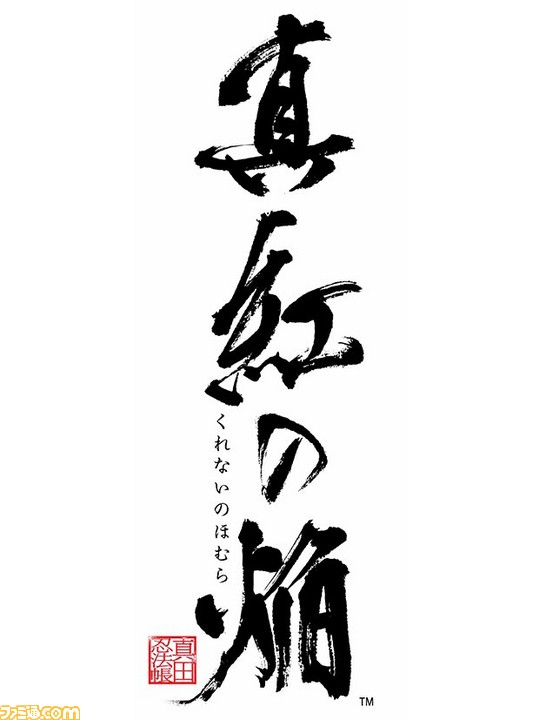 真紅の焔
くれないのほむら
真田
忍法帳
TM
ファミ通.com